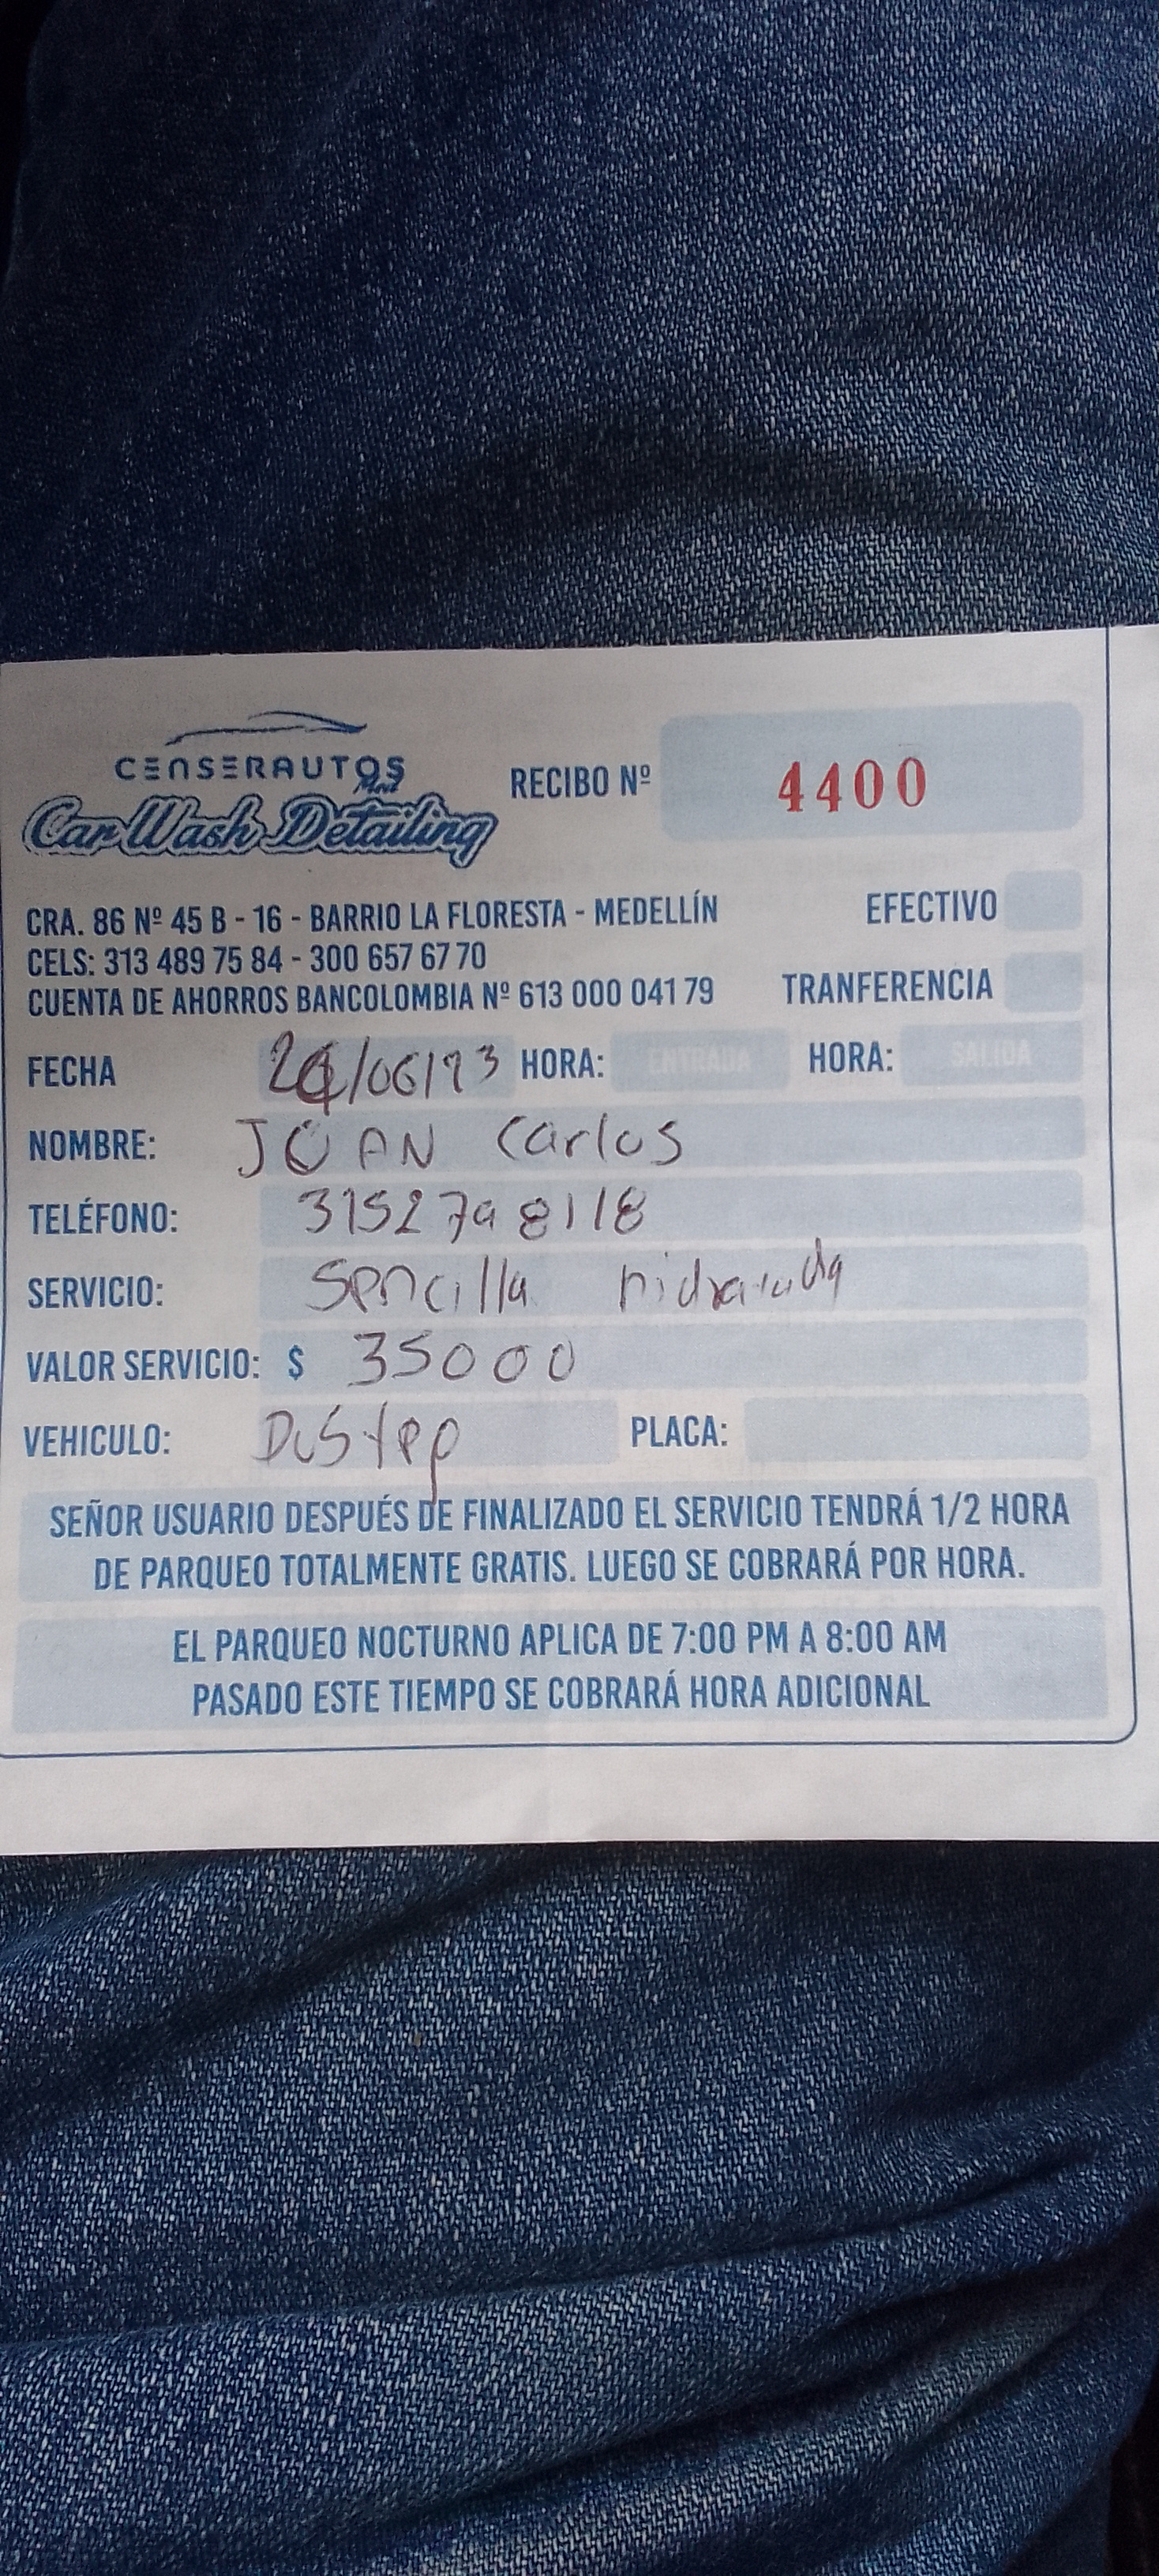 CENSERAUTOS
Car Wash And Detailing
RECIBO Nº 4400
CRA. 86 Nº 45 B - 16 - BARRIO LA FLORESTA - MEDELLÍN
EFECTIVO
CELS: 313 489 75 84 - 300 657 67 70
CUENTA DE AHORROS BANCOLOMBIA Nº 613 000 041 79
TRANFERENCIA
FECHA 24/06/13 HORA: ENTRADA HORA: SALIDA
NOMBRE: JUAN Carlos
TELÉFONO: 3152798118
SERVICIO: Sencilla hidratada
VALOR SERVICIO: $ 35000
VEHICULO: DuSter PLACA:
SEÑOR USUARIO DESPUÉS DE FINALIZADO EL SERVICIO TENDRÁ 1/2 HORA
DE PARQUEO TOTALMENTE GRATIS. LUEGO SE COBRARÁ POR HORA.
EL PARQUEO NOCTURNO APLICA DE 7:00 PM A 8:00 AM
PASADO ESTE TIEMPO SE COBRARÁ HORA ADICIONAL